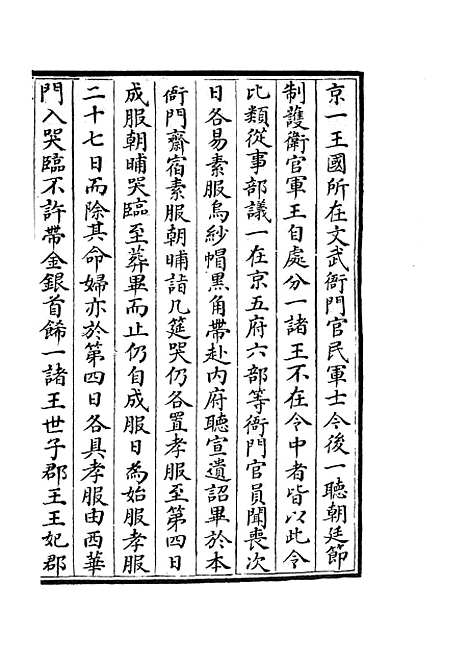 京一王國所在文武衙門官民軍士今後一聽朝廷節
制護衛官軍王自處分一諸王不在令中者皆以此令
比類從事部議一在京五府六部等衙門官員聞喪次
日各易素服烏紗帽黑角帶赴内府聽宣遺詔畢於本
衙門齋宿素服朝晡詣几筵哭仍各置孝服至第四日
成服朝晡哭臨至葬畢而止仍自成服日為始服孝服
二十七日而除其命婦亦於第四日各具孝服由西華
門入哭臨不許帶金銀首餙一諸王世子郡王王妃郡